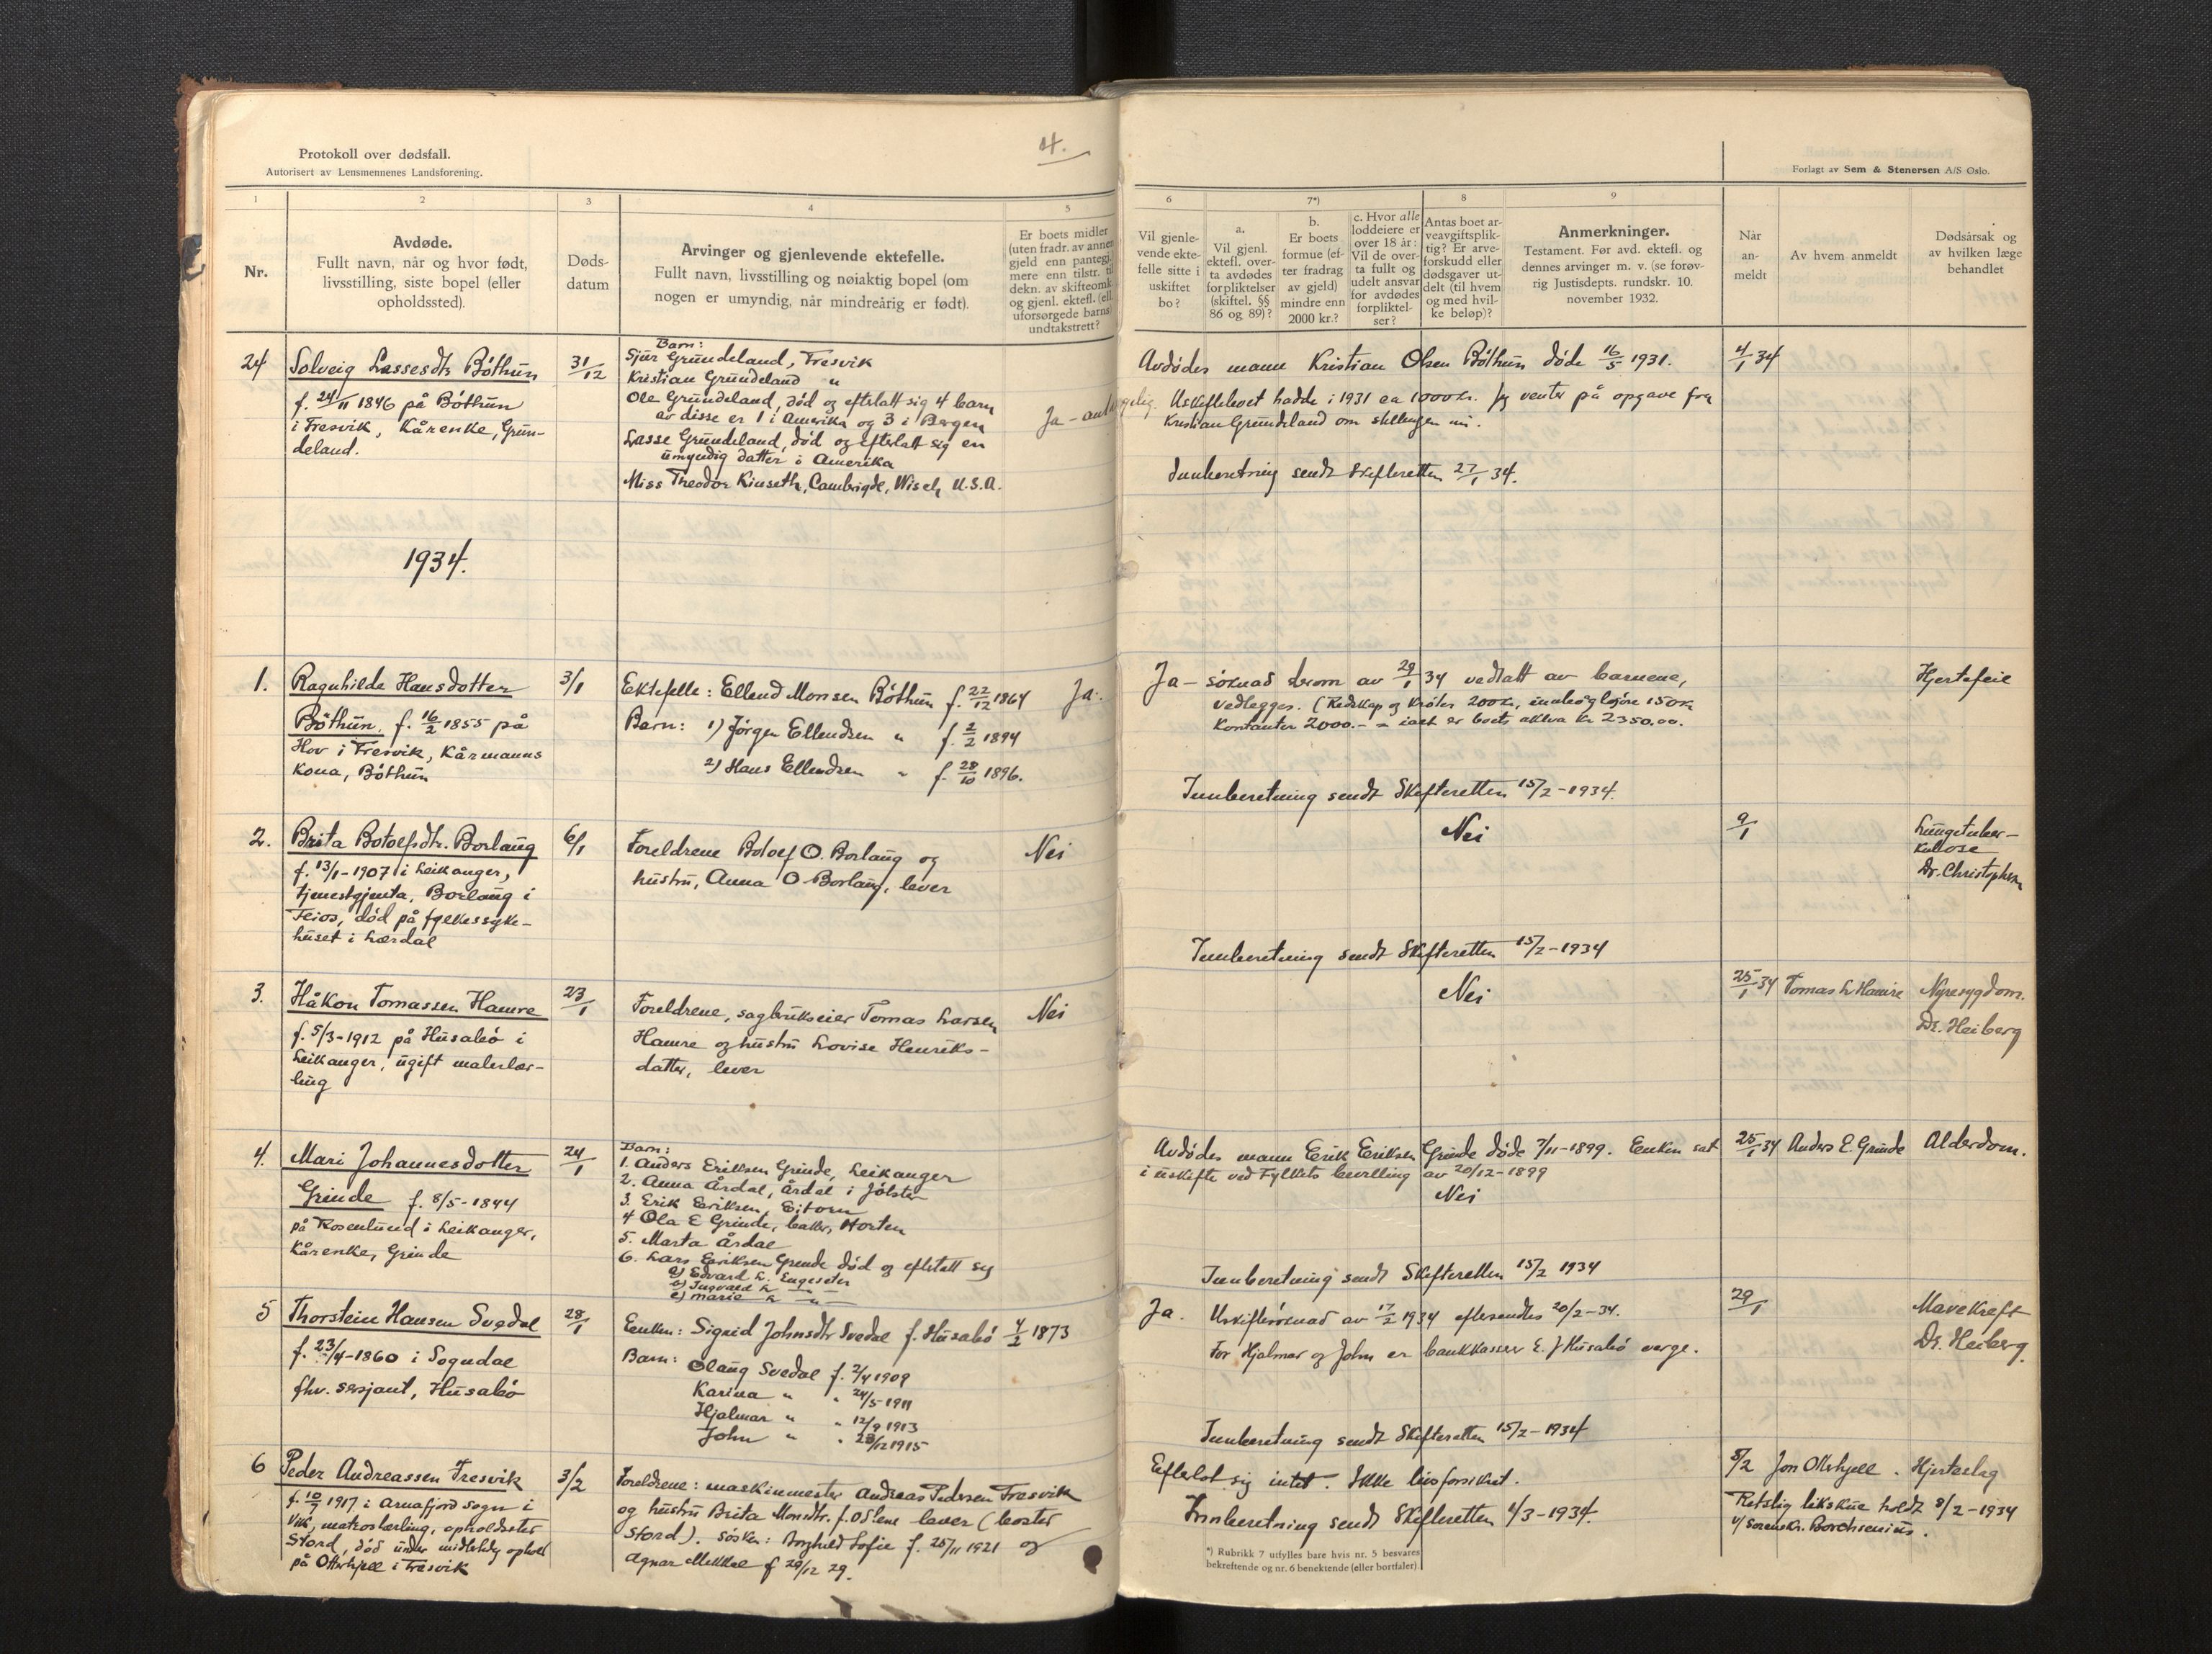 4.
Protokoll over dødsfall.
Autorisert av Lensmennenes Landsforening.
Forlagt av Sem & Stenersen A/S Oslo.
1
2
3
4
5
6
7*)
8
9
Nr.
Avdøde.
Fullt navn, når og hvor født,
livsstilling, siste bopel (eller
opholdssted).
Døds-
datum
Arvinger og gjenlevende ektefelle.
Fullt navn, livsstilling og nøiaktig bopel (om
nogen er umyndig, når mindreårig er født).
Er boets midler
(uten fradr. av annen
gjeld enn pantegj.)
mere enn tilstr. til
dekn. av skifteomk.
og gjenl. ektef. (ell.
uforsørgede barns)
undtakstrett?
Vil gjenle-
vende ekte-
felle sitte i
uskiftet
bo?
a.
Vil gjenl.
ektefl. over-
ta avdødes
forpliktelser
(skiftel. §§
86 og 89)?
b.
Er boets
formue (ef-
ter fradrag
av gjeld)
mindre enn
2000 kr.?
c. Hvor alle
loddeiere er
over 18 år:
Vil de over-
ta fullt og
udelt ansvar
for avdødes
forpliktel-
ser?
Antas boet ar-
veavgiftsplik-
tig? Er arve-
forskudd eller
dødsgaver ut-
delt (til hvem
og med hvil-
ke beløp)?
Anmerkninger.
Testament. Før avd. ektefl. og
dennes arvinger m. v. (se forøv-
rig Justisdepts. rundskr. 10.
november 1932.
Når
an-
meldt
Av hvem anmeldt
Dødsårsak og
av hvilken læge
behandlet
24
Solveig Lassesdtr Bøthun
f. 24/11 1846 på Bøthun
i Fresvik, Kårenke, Grün-
deland.
31/12
Barn:
Sjur Gründeland, Fresvik
Kristian Gründeland "
Ole Gründeland, død og efterlatt sig 4 barn
av disse er 1 i Amerika og 3 i Bergen
Lasse Gründeland, død og efterlatt sig en
umyndig datter i Amerika
Miss Theodor Kinseth, Cambrigde, Wisch, U.S.A.
Ja - antagelig.
Avdødes mann Kristian Olsen Bøthun døde 16/5 1931.
Uskifteboet hadde i 1931 ca 1000 kr. Jeg venter på opgave fra
Kristian Gründeland om stillingen nu.
Innberetning sendt Skifteretten 27/1 34.
4/1 34
1934.
1.
Ragnhilde Hansdotter
Bøthun, f. 16/2 1855 på
Hov i Fresvik, Kårmanns
Kona, Bøthun
3/1
Ektefelle: Ellend Monsen Bøthun f. 22/12 1864
Barn: 1) Jørgen Ellendsen " f. 2/2 1894
2) Hans Ellendsen " f. 28/10 1896.
Ja.
Ja - søknad herom av 29/1 34 vedtatt av barnene,
vedlegges. (Redskap og krøter 200 kr, innbo og løsøre 150 kr
Kontanter 2000.- = ialt er boets aktiva kr 2350.00.
Innberetning sendt Skifteretten 15/2-1934.
Hjertefeil
2.
Brita Botolfsdtr. Borlaug
f. 13/1-1907 i Leikanger,
tjenestgjenta, Borlaug i
Feios, død på fylkessyke-
huset i Lærdal
6/1
Foreldrene Botolf O. Borlaug og
hustru, Anna O Borlaug, lever
Nei
Nei
Innberetning sendt Skifteretten 15/2-1934
9/1
Lungetuber-
kulose
Dr. Christophersen
3.
Håkon Tomassen Hamre
f. 5/3-1912 på Husabø i
Leikanger, ugift malerlær-
ling
23/1
Foreldrene, sagbrukseier Tomas Larsen
Hamre og hustru Lovise Henriks-
datter, lever
Nei
Nei
25/1 34
Tomas L Hamre
Nyresygdom.
Dr. Heiberg
4.
Mari Johannesdotter
Grinde f. 8/5-1844
på Rosenlund i Leikanger,
Kårenke, Grinde
24/1
Barn:
1. Anders Eriksen Grinde, Leikanger
2. Anna Årdal, Årdal i Jølster
3. Erik Eriksen, Eitorn
4 Ola E Grinde, baker, Horten
5. Marta Årdal
6. Lars Eriksen Grinde død og efterlatt sig
a) Edvard L. Engeseter
b) Ingvald L — " —
c) Marie L — " —
Avdødes mann Erik Eriksen Grinde døde 7/11-1899. Enken sat
i uskifte ved Fylkets bevilling av 20/12-1899
Nei
Innberetning sendt Skifteretten 15/2 1934
25/1 34
Anders E. Grinde
Alderdom.
5
Thorstein Hansen Svedal
f. 23/4-1860 i Sogndal
fhv. sersjant, Husabø
28/1
Enken: Sigrid Johnsdtr Svedal f. Husabø 4/2 1873
Barn: Olaug Svedal f. 2/4 1909
Karina " " 24/5-1911
Hjalmar " " 12/9 1913
John " " 28/12 1915
Ja.
Uskiftesøknad av 17/2 1934 eftersendtes 20/2-34.
For Hjalmar og John er bankkasser E. J Husabø verge.
Innberetning sendt Skifteretten 15/2-1934
29/1
Mavekreft
Dr. Heiberg.
6
Peder Andreassen Fresvik
f. 10/7 1917 i Arnafjord sogn i
Vik, matroslærling, opholdssted
Stord, død under midlertidig ophold
på Otterhjell i Fresvik
3/2
Foreldrene: maskinmester Andreas Pedersen Fresvik
og hustru Brita Monsdtr. f. Oslene lever (bosted
Stord). søsken: Borghild Sofie f. 25/11 1921 og
Agnar Mikkal f 29/12 29.
Efterlot sig intet. Ikke livsforsikret.
Innberetning sendt Skifteretten 1/3-1934.
5/2
Jon Otterhjell.
Hjerteslag
Retslig likskue holdt 8/2-1934
v/ Sorenskr. Borchsenius.
*) Rubrikk 7 utfylles bare hvis nr. 5 besvares
bekreftende og nr. 6 benektende (eller bortfaller).